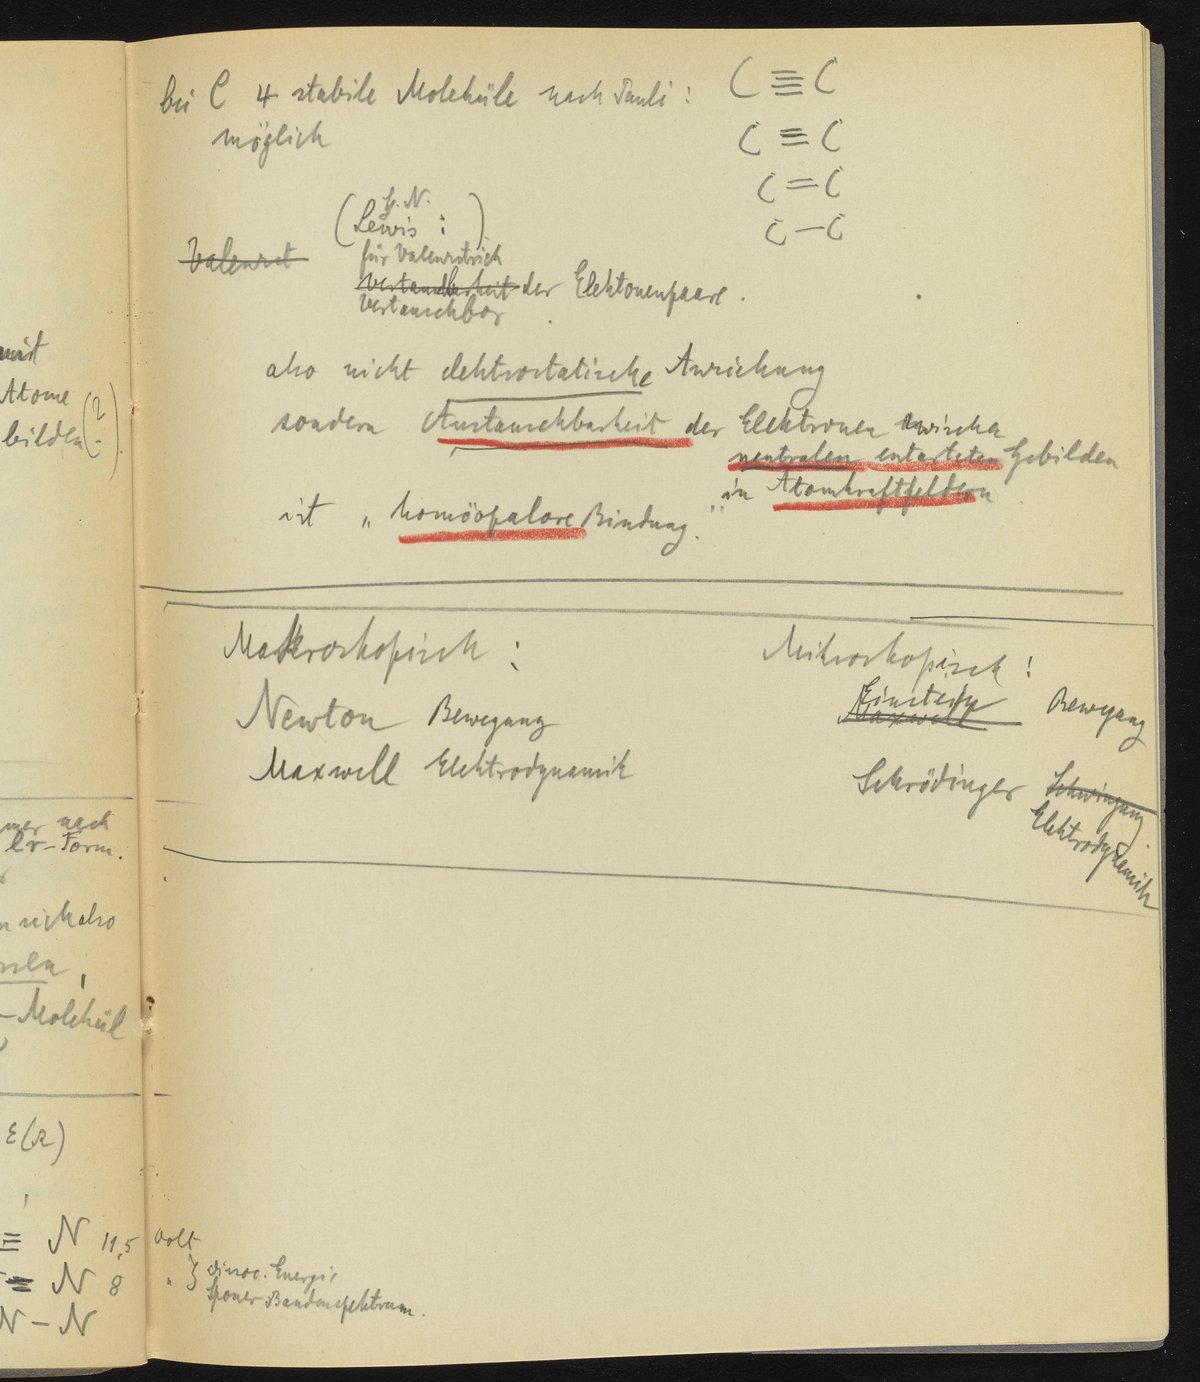 bei C 4 stabile Moleküle nach Pauli :
möglich
C ≣ C
C ≡ C
C = C
C – C
(G. N. Lewis : )
Valenzst
für Valenzstrich
Vertauschbarkeit der Elektonenpaare .
Vertauschbar
also nicht elektrostatische Anziehung
sondern Austauschbarkeit der Elektronen zwischen
neutralen entarteten Gebilden
in Atomkraftfeldern
ist „homöopolare Bindung."
Makroskopisch :
Newton Bewegung
Maxwell Elektrodynamik
Mikroskopisch :
Einstein Bewegung
Maxwell
Schrödinger Schwingung
Elektrodynamik
mit
Atome
bilden (?).
mer nach
lr-Form.
sich also
seln ,
– Molekül
ε(r)
≡ N 11,5 Volt
= N 8 " } dissoc. Energie
N – N
Sponer Bandenspektrum.